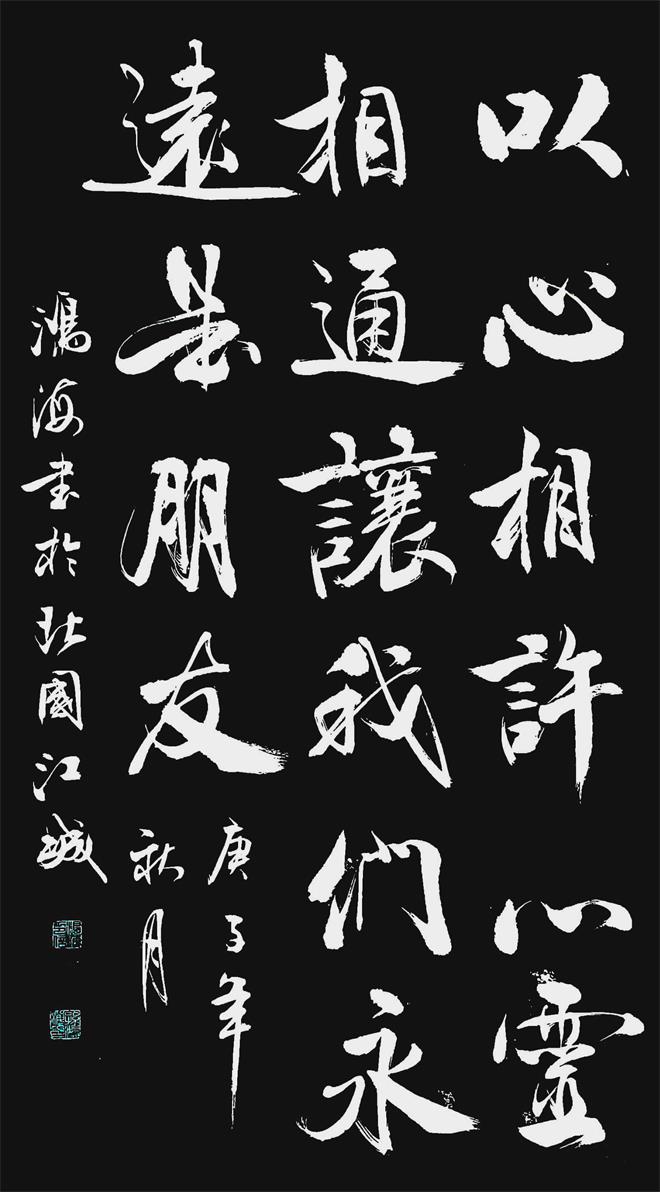 以心相許心靈
相通讓我們永
遠是朋友
庚子年
秋月
鴻海书於北國江城